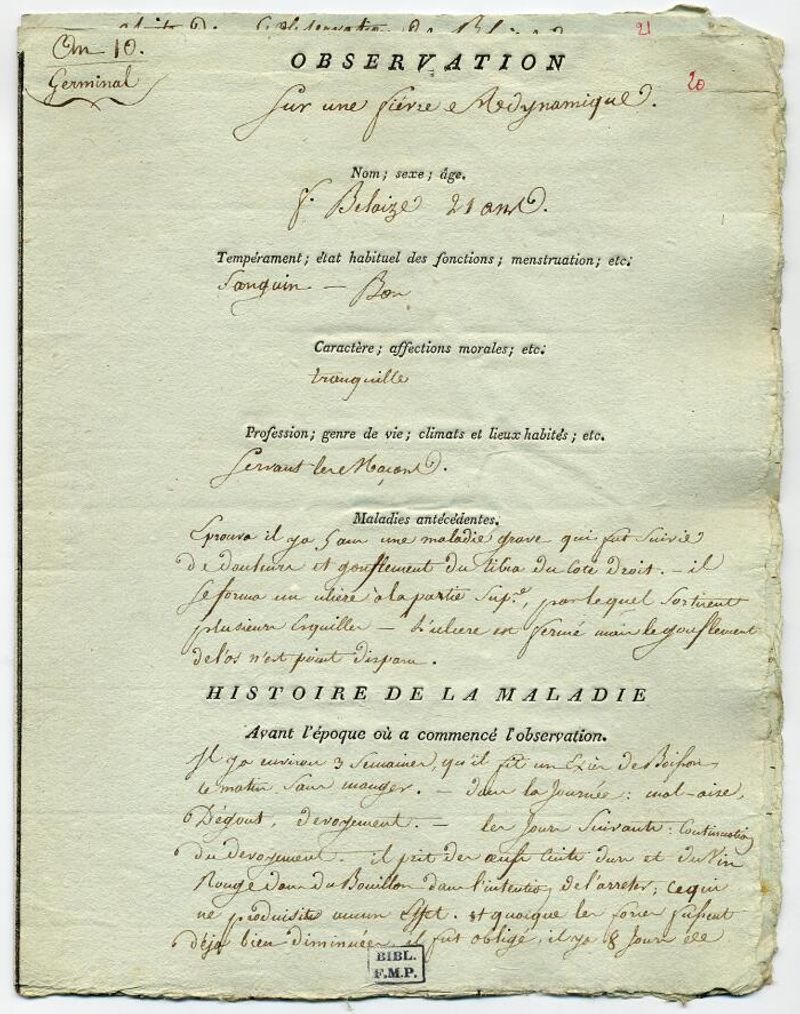 An 10.
Germinal
21
20
OBSERVATION
Sur une fiévre Adynamique.
Nom; sexe; âge.
f. Belaize 21 ans.
Tempérament; état habituel des fonctions; menstruation; etc.
Sanguin — Bon
Caractère; affections morales; etc.
tranquille
Profession; genre de vie; climats et lieux habités; etc.
Servant les Maçons.
Maladies antécédentes.
Eprouva il y a 5 ans une maladie grave qui fut suivie
de douleurs et gonflement du tibia du coté droit. — il
se forma un ulcère à la partie Supre, par lequel sortirent
plusieurs Esquilles — L'ulcere est fermé mais le gonflement
de l'os n'est point disparu.
HISTOIRE DE LA MALADIE
Avant l'époque où a commencé l'observation.
Il y a environ 3 Semaines, qu'il fit un Excès de Boisson
le matin sans manger. — dans la Journée: mal-aise,
Dégout, devoyement. — les Jours Suivants: Continuation
du devoyement. il prit des œufs Cuits durs et du Vin
Rouge dans du Bouillon dans l'intention de l'arreter; ce qui
ne produisit aucun Effet. et quoique les forces fussent
déja bien diminuées, il fut obligé, il y a 8 Jours de
BIBL.
F.M.P.